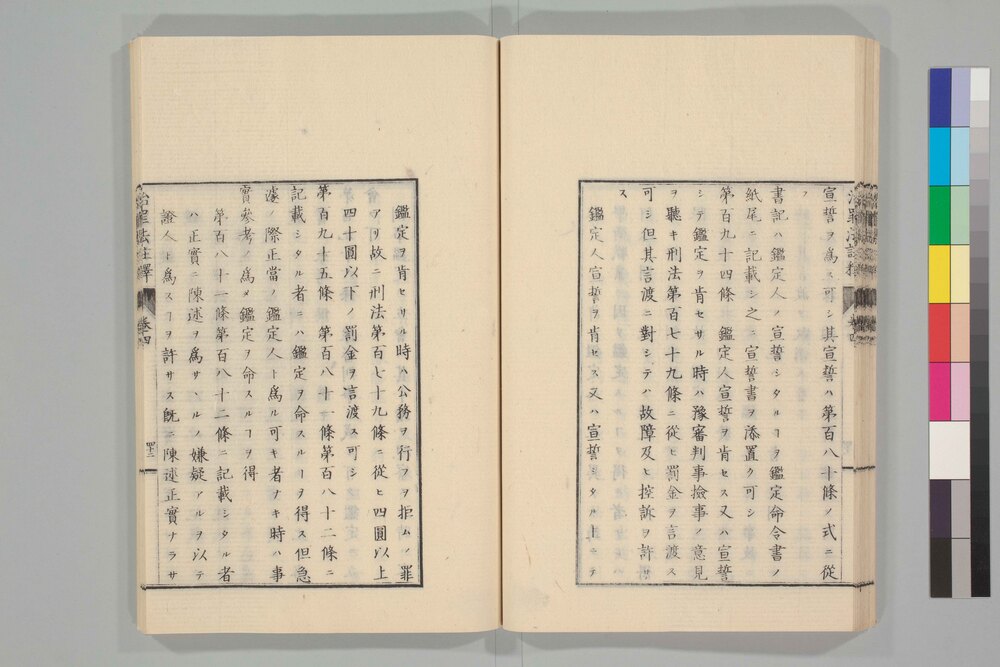 宣誓ヲ爲ス可シ其宣誓ハ第百八十條ノ式ニ從
フ
書記ハ鑑定人ノ宣誓シタルヿヲ鑑定命令書ノ
紙尾ニ記載シ之ニ宣誓書ヲ添置ク可シ
第百九十四條 鑑定人宣誓ヲ肯セス又ハ宣誓
シテ鑑定ヲ肯セサル時ハ豫審判事檢事ノ意見
ヲ聽キ刑法第百七十九條ニ從ヒ罰金ヲ言渡ス
可シ但其言渡ニ對シテハ故障及ヒ控訴ヲ許サ
ス
鑑定人宣誓ヲ肯セス又ハ宣誓シタル上ニテ
鑑定ヲ肯セサル時ハ公務ヲ行フヲ拒ムノ罪
アリ故ニ刑法第百七十九條ニ從ヒ四圓以上
四十圓以下ノ罰金ヲ言渡ス可シ
第百九十五條 第百八十一條第百八十二條ニ
記載シタル者ニハ鑑定ヲ命スルヿヲ得ス但急
遽ノ際正當ノ鑑定人ト爲ル可キ者ナキ時ハ事
實參考ノ爲メ鑑定ヲ命スルヿヲ得
第百八十一條第百八十二條ニ記載シタル者
ハ正實ニ陳述ヲ爲サヽルノ嫌疑アルヲ以テ
證人ト爲スヿヲ許サス既ニ陳述正實ナラサ
治罪法註釋 卷四 四十二